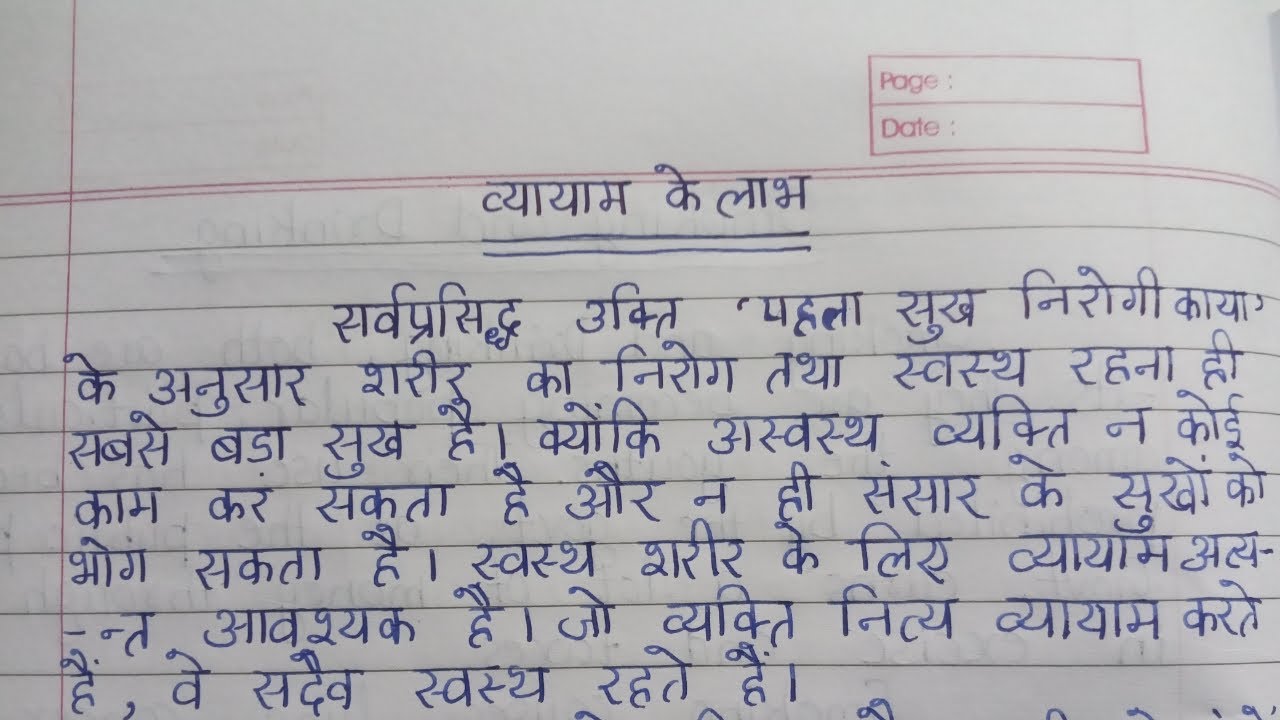 Page :
Date :
व्यायाम के लाभ
सर्वप्रसिद्ध उक्ति 'पहला सुख निरोगी काया'
के अनुसार शरीर का निरोग तथा स्वस्थ रहना ही
सबसे बड़ा सुख है। क्योंकि अस्वस्थ व्यक्ति न कोई
काम कर सकता है और न ही संसार के सुखों को
भोग सकता है। स्वस्थ शरीर के लिए व्यायाम अत्य-
-न्त आवश्यक है। जो व्यक्ति नित्य व्यायाम करते
हैं, वे सदैव स्वस्थ रहते हैं।